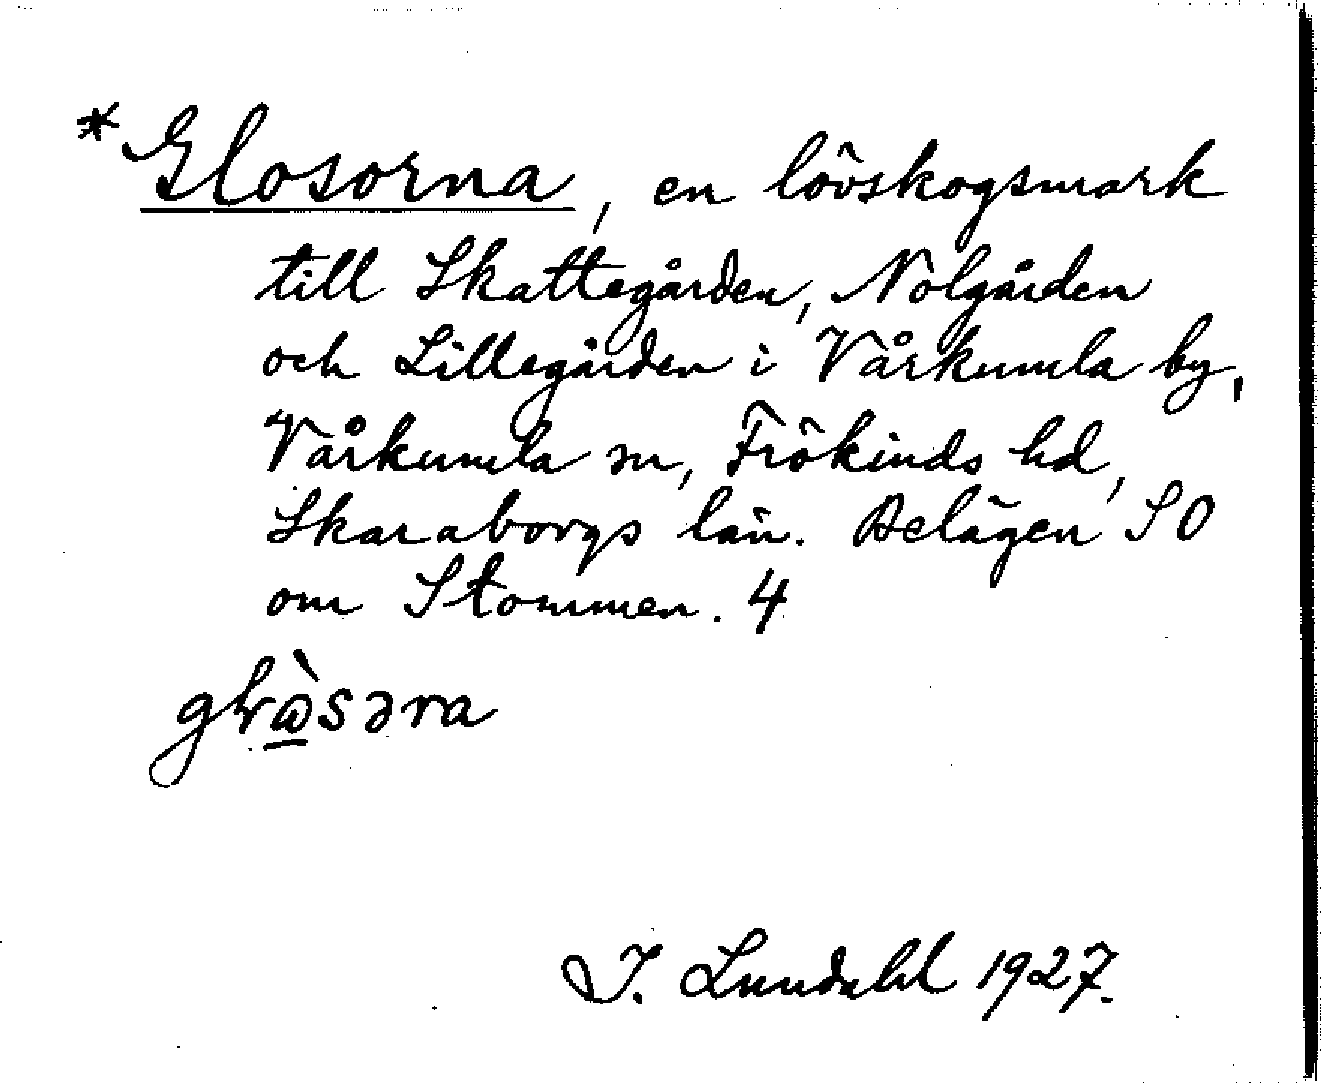 * Glosorna, en lövskogsmark
till Skattegården, Nolgården
och Lillegården i Vårkumla by,
Vårkumla sn, Frökinds hd,
Skaraborgs län. Belägen SO
om Stommen. 4
I. Lundahl 1927.